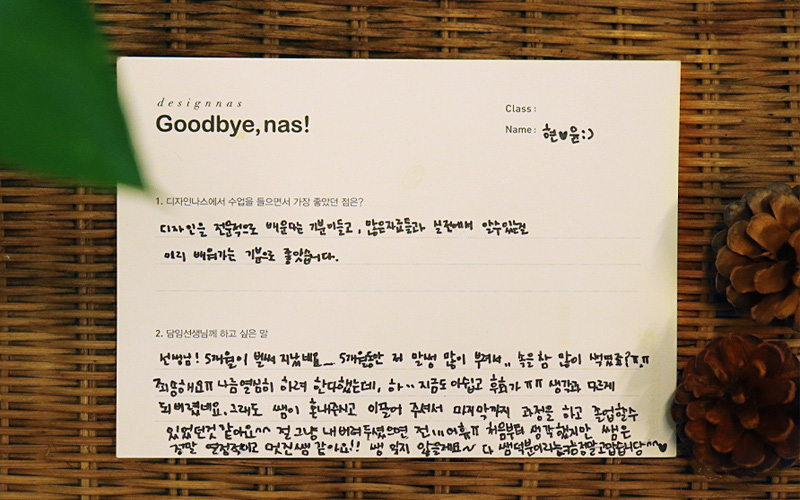 designnas
Goodbye, nas!
Class :
Name : 현♥윤:)
1. 디자인나스에서 수업을 들으면서 가장 좋았던 점은?
디자인을 전문적으로 배운다는 기분이들고, 많은자료들과 실전에서 알수있는걸
미리 배워가는 기분으로 좋았습니다.
2. 담임선생님께 하고 싶은 말
선생님! 5개월이 벌써 지났네요... 5개월동안 저 말썽 많이 부려서.. 속을 참 많이 썩였죠?ㅠㅠ
죄송해요ㅠ 나름 열심히 하려 한다했는데, 하.. 지금도 아쉽고 후회가 ㅠㅠ 생각과 다르게
되버렸네요. 그래도 쌤이 혼내주시고 이끌어 주셔서 마지막까지 과정을 하고 졸업할수
있었던것 같아요^^ 걍 그냥 내버려두셨으면 전... 어휴ㅠ 처음부터 생각했지만 쌤은
정말 열정적이고 멋진쌤 같아요!! 쌤 잊지 않을게요~ 다 쌤덕분이라능 정말고맙습니당^^♥